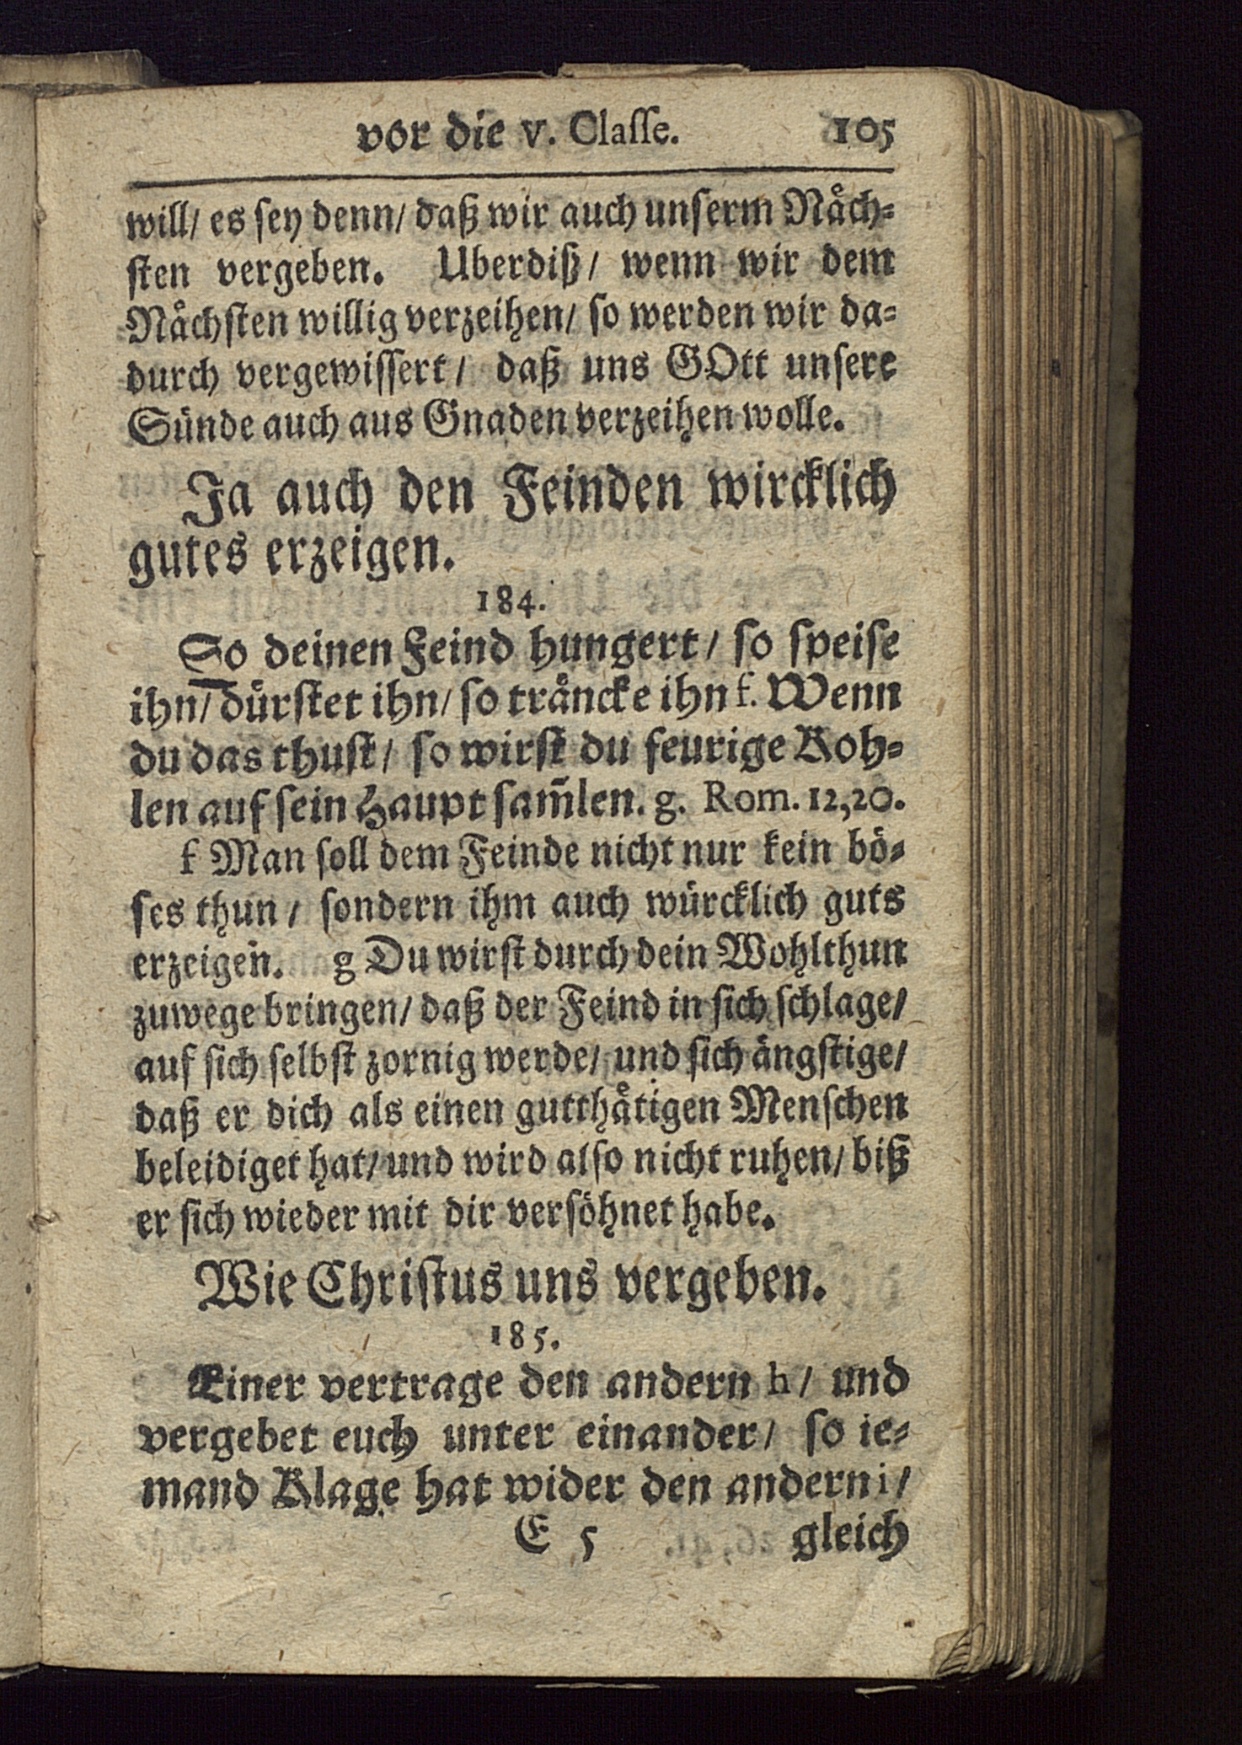 vor die v. Claſſe. 105
will/ es ſey denn/ daß wir auch unſerm Naͤch-
ſten vergeben. Uberdiß/ wenn wir dem
Naͤchſten willig verzeihen/ ſo werden wir da-
durch vergewiſſert/ daß uns GOtt unſere
Suͤnde auch aus Gnaden verzeihen wolle.
Ja auch den Feinden wircklich
gutes erzeigen.
184.
So deinen Feind hungert/ ſo ſpeiſe
ihn/ duͤrſtet ihn/ ſo traͤncke ihn f. Wenn
du das thuſt/ ſo wirſt du feurige Koh-
len auf ſein Haupt ſam̃len. g. Rom. 12,20.
f Man ſoll dem Feinde nicht nur kein boͤ-
ſes thun/ ſondern ihm auch wuͤrcklich guts
erzeigen. g Du wirſt durch dein Wohlthun
zuwege bringen/ daß der Feind in ſich ſchlage/
auf ſich ſelbſt zornig werde/ und ſich aͤngſtige/
daß er dich als einen gutthaͤtigen Menſchen
beleidiget hat/ und wird alſo nicht ruhen/ biß
er ſich wieder mit dir verſoͤhnet habe.
Wie Chriſtus uns vergeben.
185.
Einer vertrage den andern h/ und
vergebet euch unter einander/ ſo ie-
mand Klage hat wider den andern i/
E 5 gleich